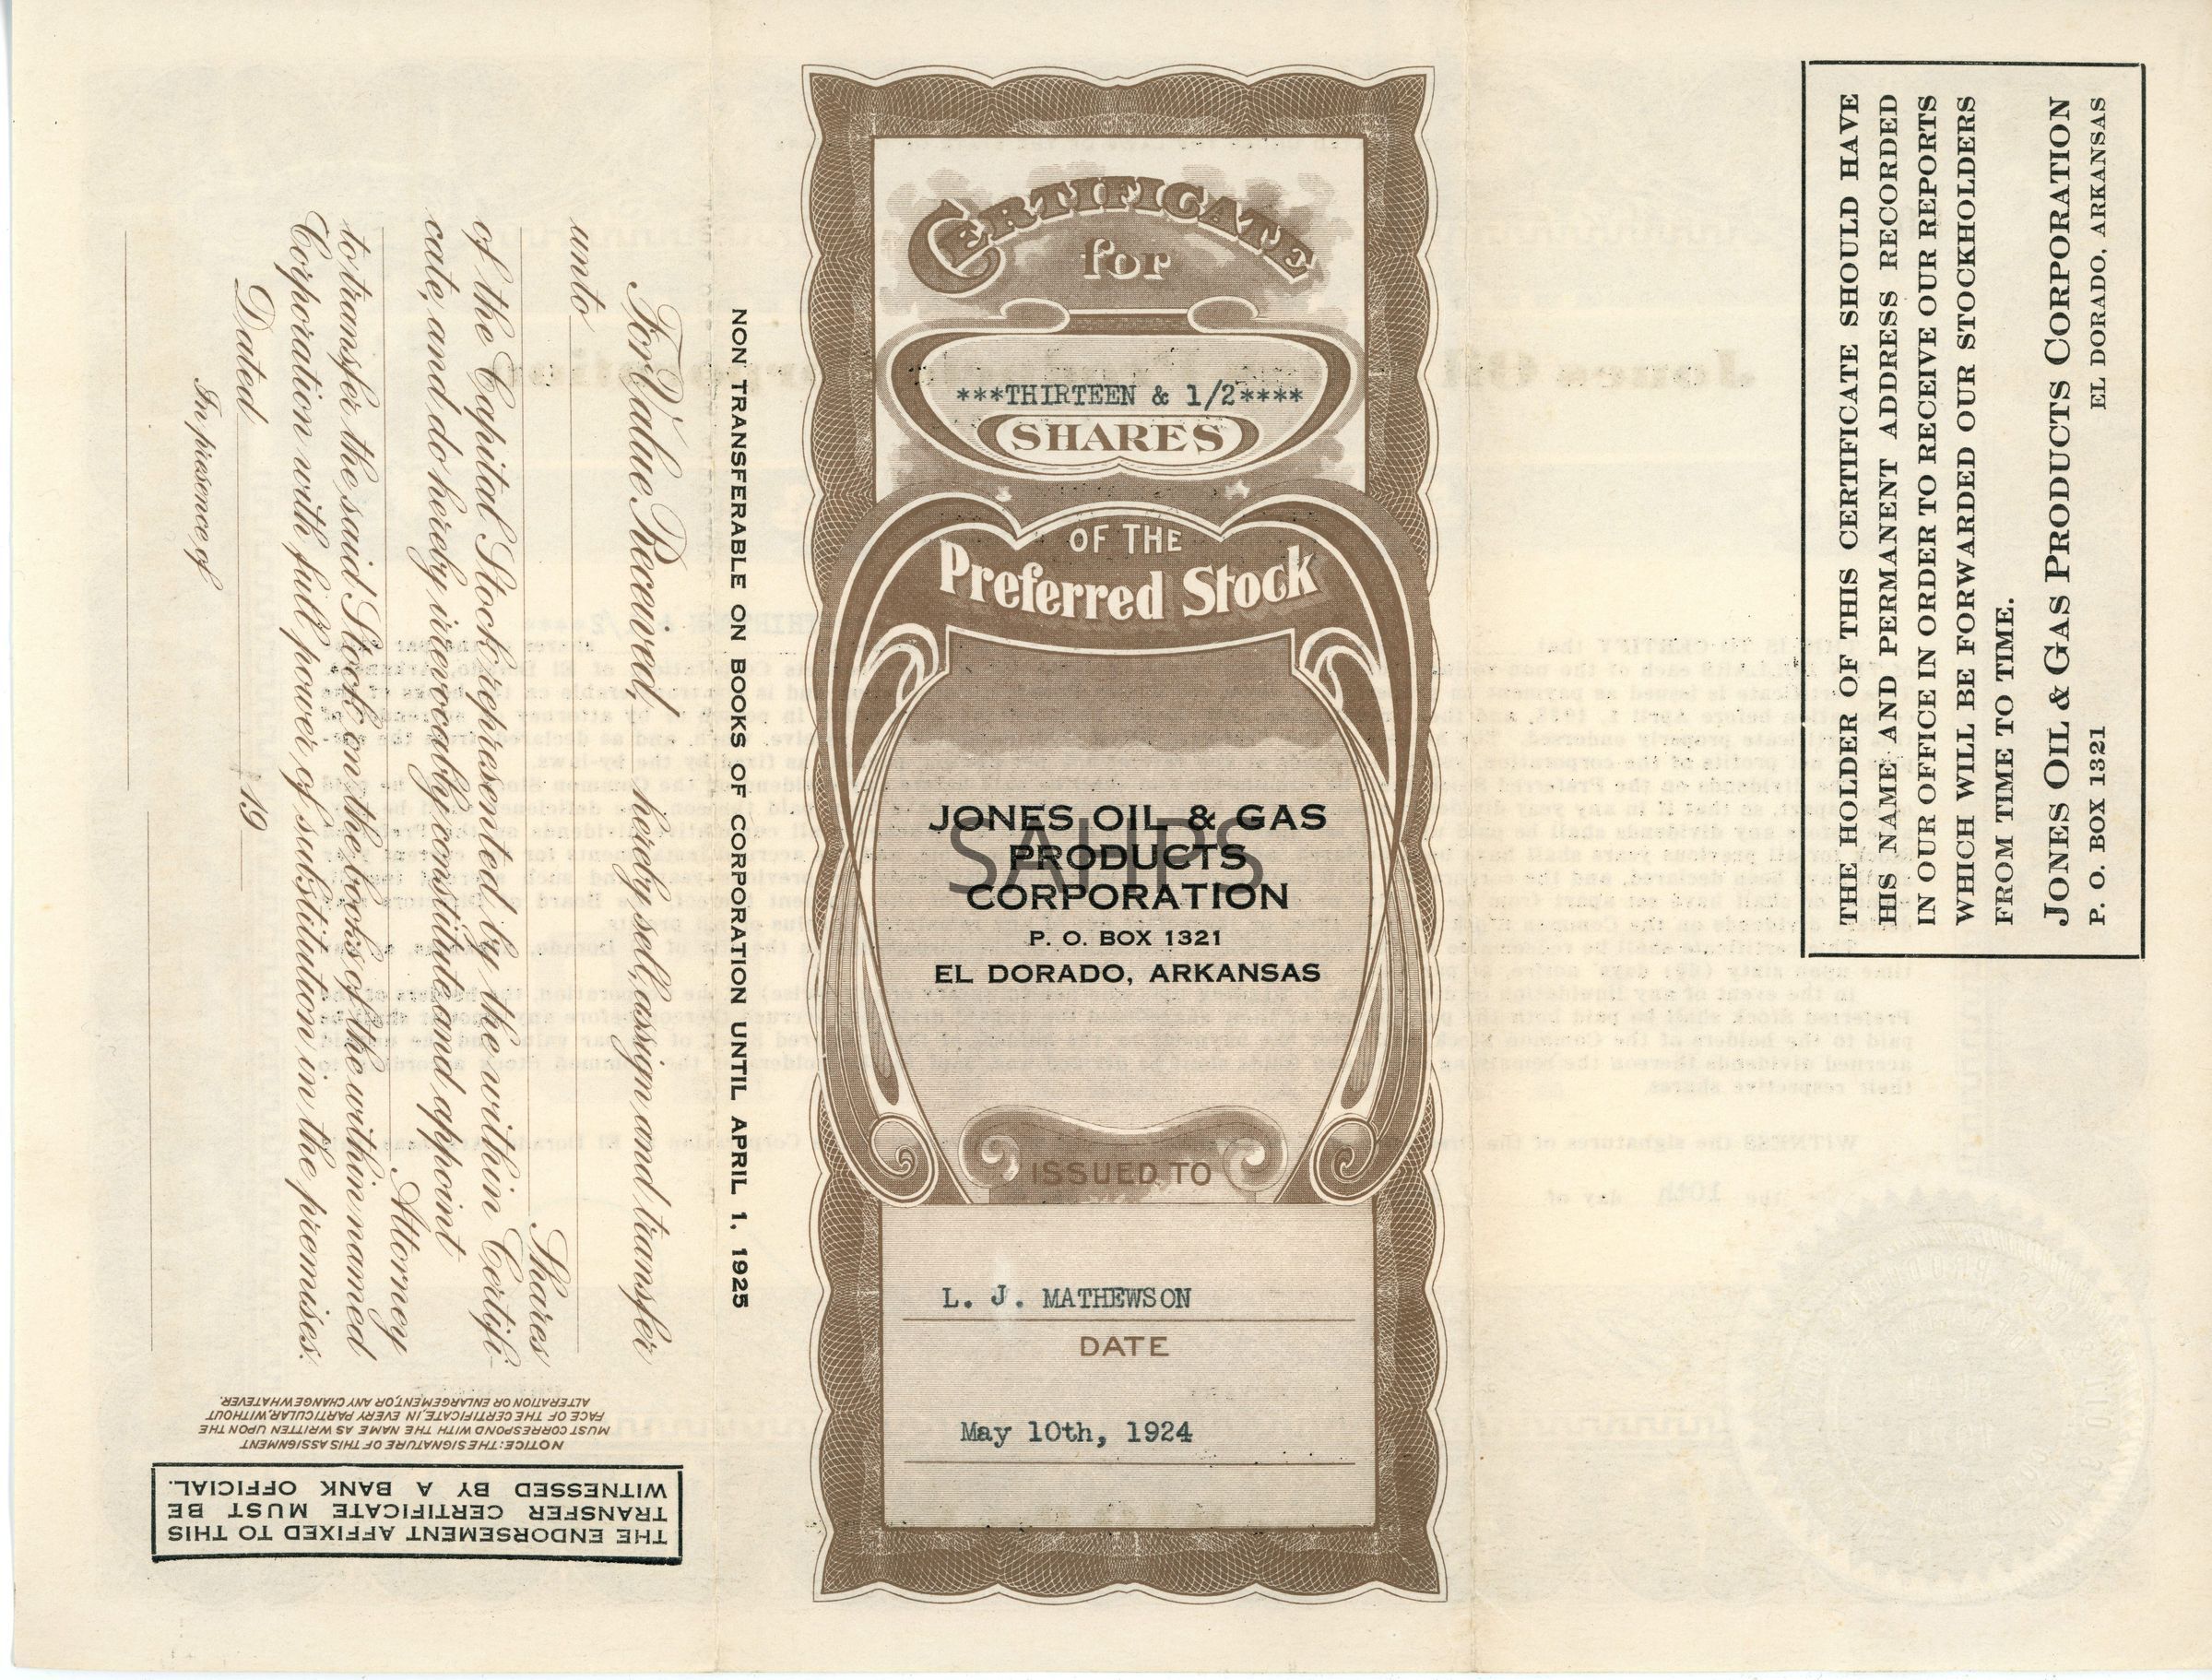 For Value Received hereby sell, assign and transfer
unto
Shares
of the Capital Stock represented by the within Certifi-
cate, and do hereby irrevocably constitute and appoint
Attorney
to transfer the said Stock on the books of the within named
Corporation with full power of substitution in the premises.
Dated 19
In presence of
NOTICE: THE SIGNATURE OF THIS ASSIGNMENT
MUST CORRESPOND WITH THE NAME AS WRITTEN UPON THE
FACE OF THE CERTIFICATE, IN EVERY PARTICULAR, WITHOUT
ALTERATION OR ENLARGEMENT, OR ANY CHANGE WHATEVER.
THE ENDORSEMENT AFFIXED TO THIS
TRANSFER CERTIFICATE MUST BE
WITNESSED BY A BANK OFFICIAL.
NON TRANSFERABLE ON BOOKS OF CORPORATION UNTIL APRIL 1, 1925
CERTIFICATE
for
***THIRTEEN & 1/2****
SHARES
OF THE
Preferred Stock
JONES OIL & GAS
PRODUCTS
CORPORATION
SAHPS
P. O. BOX 1321
EL DORADO, ARKANSAS
ISSUED TO
L. J. MATHEWSON
DATE
May 10th, 1924
THE HOLDER OF THIS CERTIFICATE SHOULD HAVE
HIS NAME AND PERMANENT ADDRESS RECORDED
IN OUR OFFICE IN ORDER TO RECEIVE OUR REPORTS
WHICH WILL BE FORWARDED OUR STOCKHOLDERS
FROM TIME TO TIME.
JONES OIL & GAS PRODUCTS CORPORATION
P. O. BOX 1321 EL DORADO, ARKANSAS